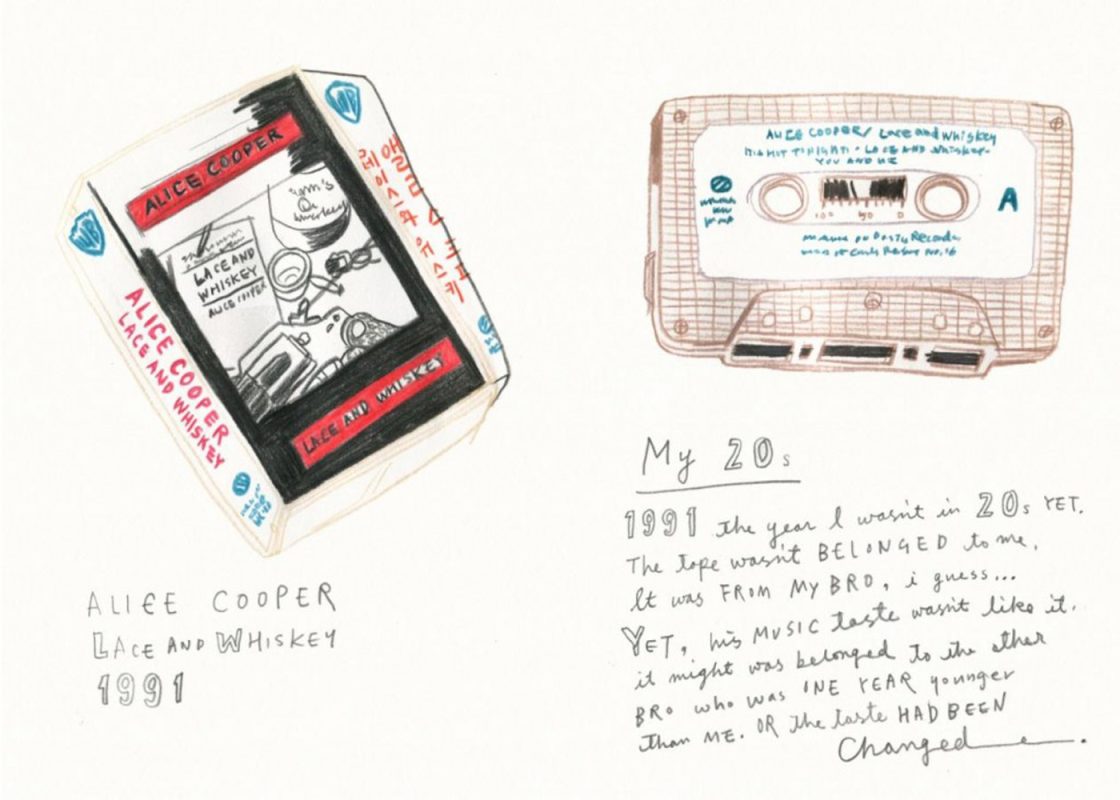 WB
ALICE COOPER
LACE AND
WHISKEY
ALICE COOPER
LACE AND WHISKEY
WB
ALICE COOPER
LACE AND WHISKEY
WB
앨리스 쿠퍼
레이스와 위스키
ALICE COOPER
LACE AND WHISKEY
1991
ALICE COOPER/ Lace and Whiskey
LACE AND Whiskey-
YOU AND ME
A
100 50 0
My 20s
1991 the year I wasn't in 20s YET.
The tape wasn't BELONGED to me.
It was FROM MY BRO, i guess...
YET, his MUSIC taste wasn't like it.
it might was belonged to the other
BRO who was ONE YEAR younger
than ME. OR the taste HAD BEEN
Changed.